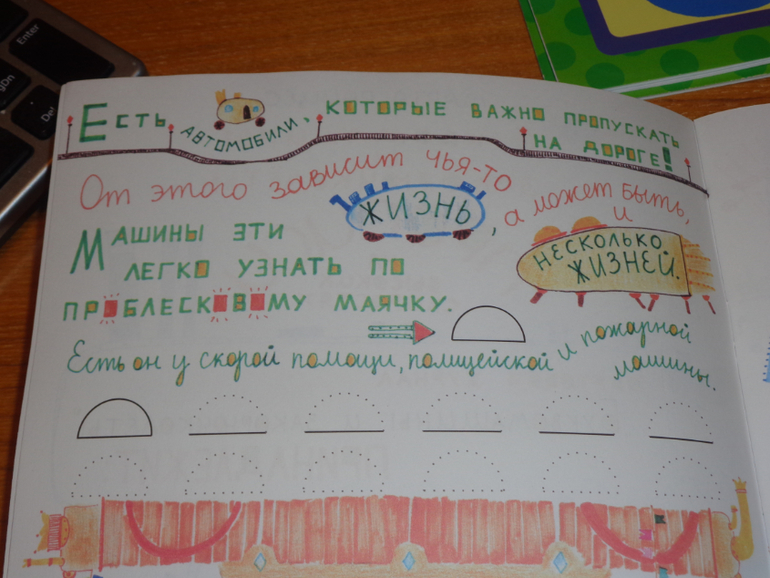 Есть автомобили, которые важно пропускать
на дороге!
От этого зависит чья-то
жизнь, а может быть,
и
несколько
жизней.
Машины эти
легко узнать по
проблесковому маячку.
Есть он у скорой помощи, полицейской и пожарной
машины.
Enter
Del